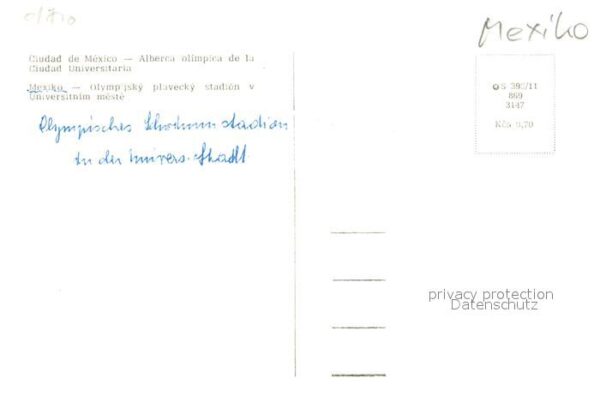 Mexiko
Ciudad de México — Alberca olímpica de la
Ciudad Universitaria
Mexiko — Olympijský plavecký stadión v
Universitním městě
Olympisches Schwimmstadion
in der Univers. Stadt
869
3147
Kčs 0,70
privacy protection
Datenschutz